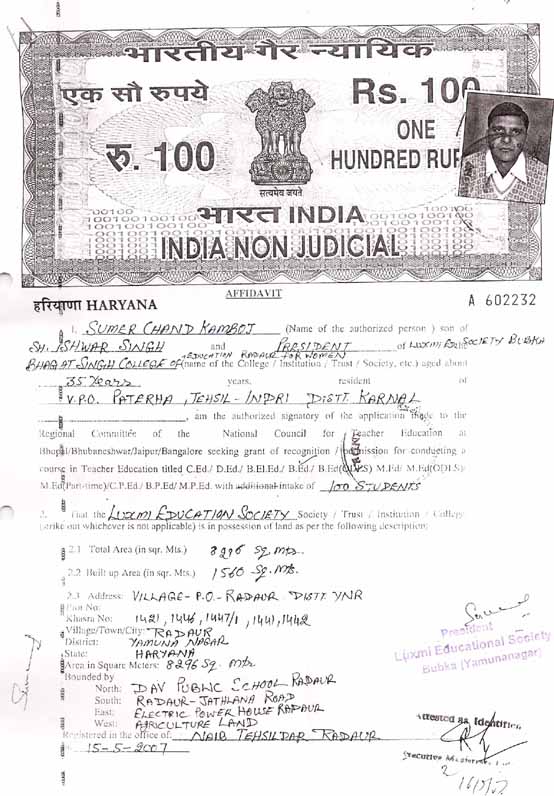 भारतीय गैर न्यायिक
एक सौ रुपये
Rs. 100
रु. 100
ONE
HUNDRED RUP
सत्यमेव जयते
भारत INDIA
INDIA NON JUDICIAL
हरियाणा HARYANA
A 602232
AFFIDAVIT
1. SUMER CHAND KAMBOJ (Name of the authorized person ) son of
SH. ISHWAR SINGH and PRESIDENT of LUXMI EDU SOCIETY BUBKA
BHAGAT SINGH COLLEGE OF EDUCATION RADAUR FOR WOMEN (name of the College / Institution / Trust / Society, etc.) aged about
35 Years years, resident of
V.P.O. PATERHA, TEHSIL-INDRI DISTT. KARNAL
, am the authorized signatory of the application made to the
Regional Committee of the National Council for Teacher Education at
Bhopal/Bhubaneshwar/Jaipur/Bangalore seeking grant of recognition / permission for conducting a
course in Teacher Education titled C.Ed./ D.Ed./ B.El.Ed./ B.Ed/ B.Ed(ODLS) M.Ed/ M.Ed(ODLS)/
M.Ed(Part-time)/C.P.Ed/ B.P.Ed/ M.P.Ed. with additional intake of 100 STUDENTS
2. That the LUXMI EDUCATION SOCIETY Society / Trust / Institution / College
(strike out whichever is not applicable) is in possession of land as per the following description:
2.1 Total Area (in sqr. Mts.) 8296 Sq. mts.
2.2 Built up Area (in sqr. Mts.) 1560 Sq. Mts.
2.3 Address: VILLAGE- P.O.- RADAUR DISTT YNR
Plot No:
Khasra No: 1421, 1446, 1447/1, 1441, 1442
Village/Town/City: RADAUR
District: YAMUNA NAGAR
State: HARYANA
Area in Square Meters: 8296 Sq. mts
Bounded by
North: DAV PUBLIC SCHOOL RADAUR
South: RADAUR-JATHLANA ROAD
East: ELECTRIC POWER HOUSE RADAUR
West: AGRICULTURE LAND
Registered in the office of NAIB TEHSILDAR RADAUR
15-5-2007
President
Luxmi Educational Society
Bubka (Yamunanagar)
Attested as Identified